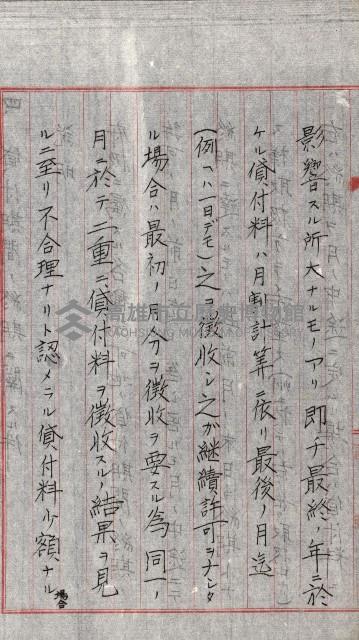 影響スル所大ナルモノアリ即チ最終ノ年ニ於
ケル貸付料ハ月割計算ニ依リ最後ノ月迄
(例ヘハ一日デモ)之ヲ徴收シ之ガ継續許可ヲナシタ
ル場合ハ最初ノ月分ヲ徴收ヲ要スル為同一ノ
月ニ於テ二重ニ貸付料ヲ徴收スルノ結果ヲ見
ルニ至リ不合理ナリト認メラル貸付料少額ナル
場合
高雄市立歷史博物館
KAOHSIUNG MUSEUM OF HISTORY